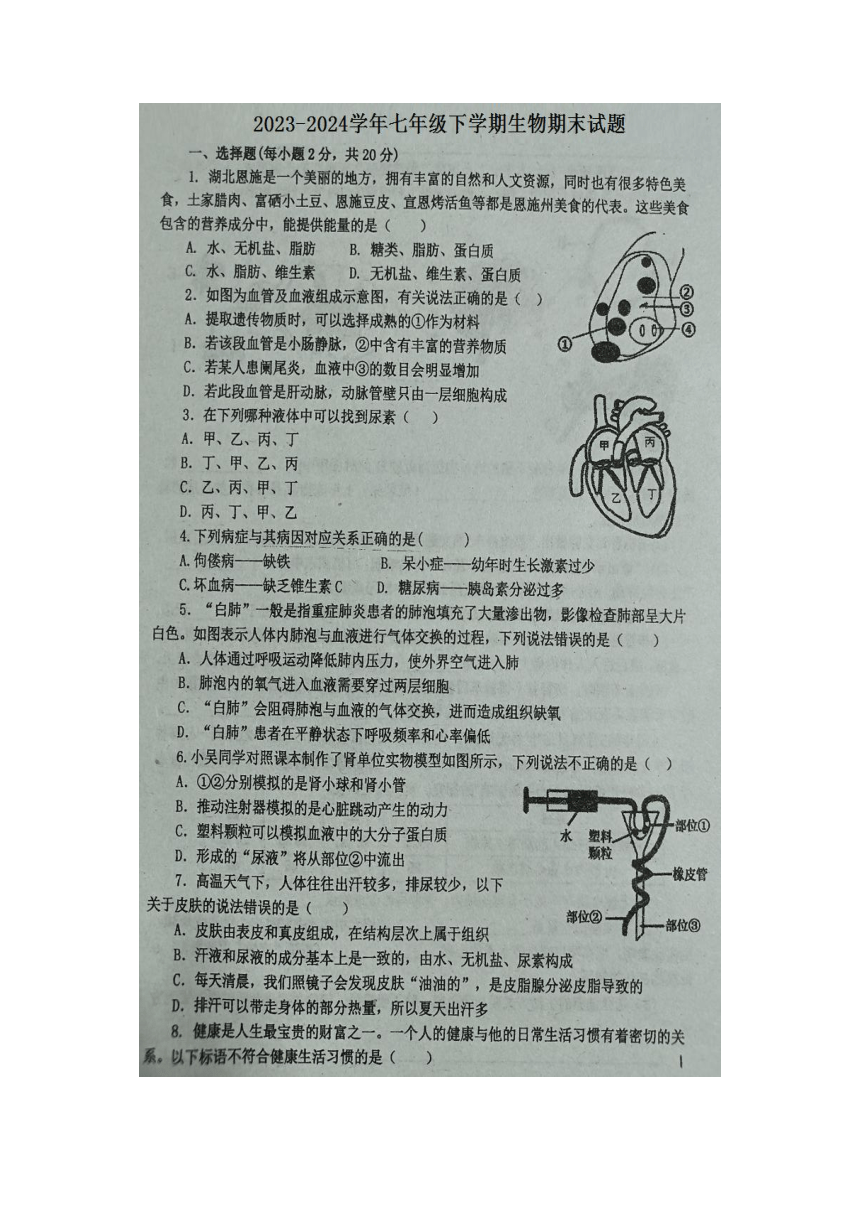 2023-2024学年七年级下学期生物期末试题
一、选择题(每小题2分，共20分)
1. 湖北恩施是一个美丽的地方，拥有丰富的自然和人文资源，同时也有很多特色美
食，土家腊肉、富硒小土豆、恩施豆皮、宣恩烤活鱼等都是恩施州美食的代表。这些美食
包含的营养成分中，能提供能量的是（ ）
A. 水、无机盐、脂肪 B. 糖类、脂肪、蛋白质
C. 水、脂肪、维生素 D. 无机盐、维生素、蛋白质
2. 如图为血管及血液组成示意图，有关说法正确的是（ ）
A. 提取遗传物质时，可以选择成熟的①作为材料
B. 若该段血管是小肠静脉，②中含有丰富的营养物质
C. 若某人患阑尾炎，血液中③的数目会明显增加
D. 若此段血管是肝动脉，动脉管壁只由一层细胞构成
① ② ③ ④
3. 在下列哪种液体中可以找到尿素（ ）
A. 甲、乙、丙、丁
B. 丁、甲、乙、丙
C. 乙、丙、甲、丁
D. 丙、丁、甲、乙
甲 丙
乙 丁
4.下列病症与其病因对应关系正确的是( )
A.佝偻病——缺铁 B. 呆小症——幼年时生长激素过少
C.坏血病——缺乏锥生素C D. 糖尿病——胰岛素分泌过多
5. “白肺”一般是指重症肺炎患者的肺泡填充了大量渗出物，影像检查肺部呈大片
白色。如图表示人体内肺泡与血液进行气体交换的过程，下列说法错误的是（ ）
A. 人体通过呼吸运动降低肺内压力，使外界空气进入肺
B. 肺泡内的氧气进入血液需要穿过两层细胞
C. “白肺”会阻碍肺泡与血液的气体交换，进而造成组织缺氧
D. “白肺”患者在平静状态下呼吸频率和心率偏低
6.小吴同学对照课本制作了肾单位实物模型如图所示，下列说法不正确的是（ ）
A. ①②分别模拟的是肾小球和肾小管
B. 推动注射器模拟的是心脏跳动产生的动力
C. 塑料颗粒可以模拟血液中的大分子蛋白质
D. 形成的“尿液”将从部位②中流出
水 塑料
颗粒
部位①
橡皮管
部位②
部位③
7. 高温天气下，人体往往出汗较多，排尿较少，以下
关于皮肤的说法错误的是（ ）
A. 皮肤由表皮和真皮组成，在结构层次上属于组织
B. 汗液和尿液的成分基本上是一致的，由水、无机盐、尿素构成
C. 每天清晨，我们照镜子会发现皮肤“油油的”，是皮脂腺分泌皮脂导致的
D. 排汗可以带走身体的部分热量，所以夏天出汗多
8. 健康是人生最宝贵的财富之一。一个人的健康与他的日常生活习惯有着密切的关
系。以下标语不符合健康生活习惯的是（ ）
1